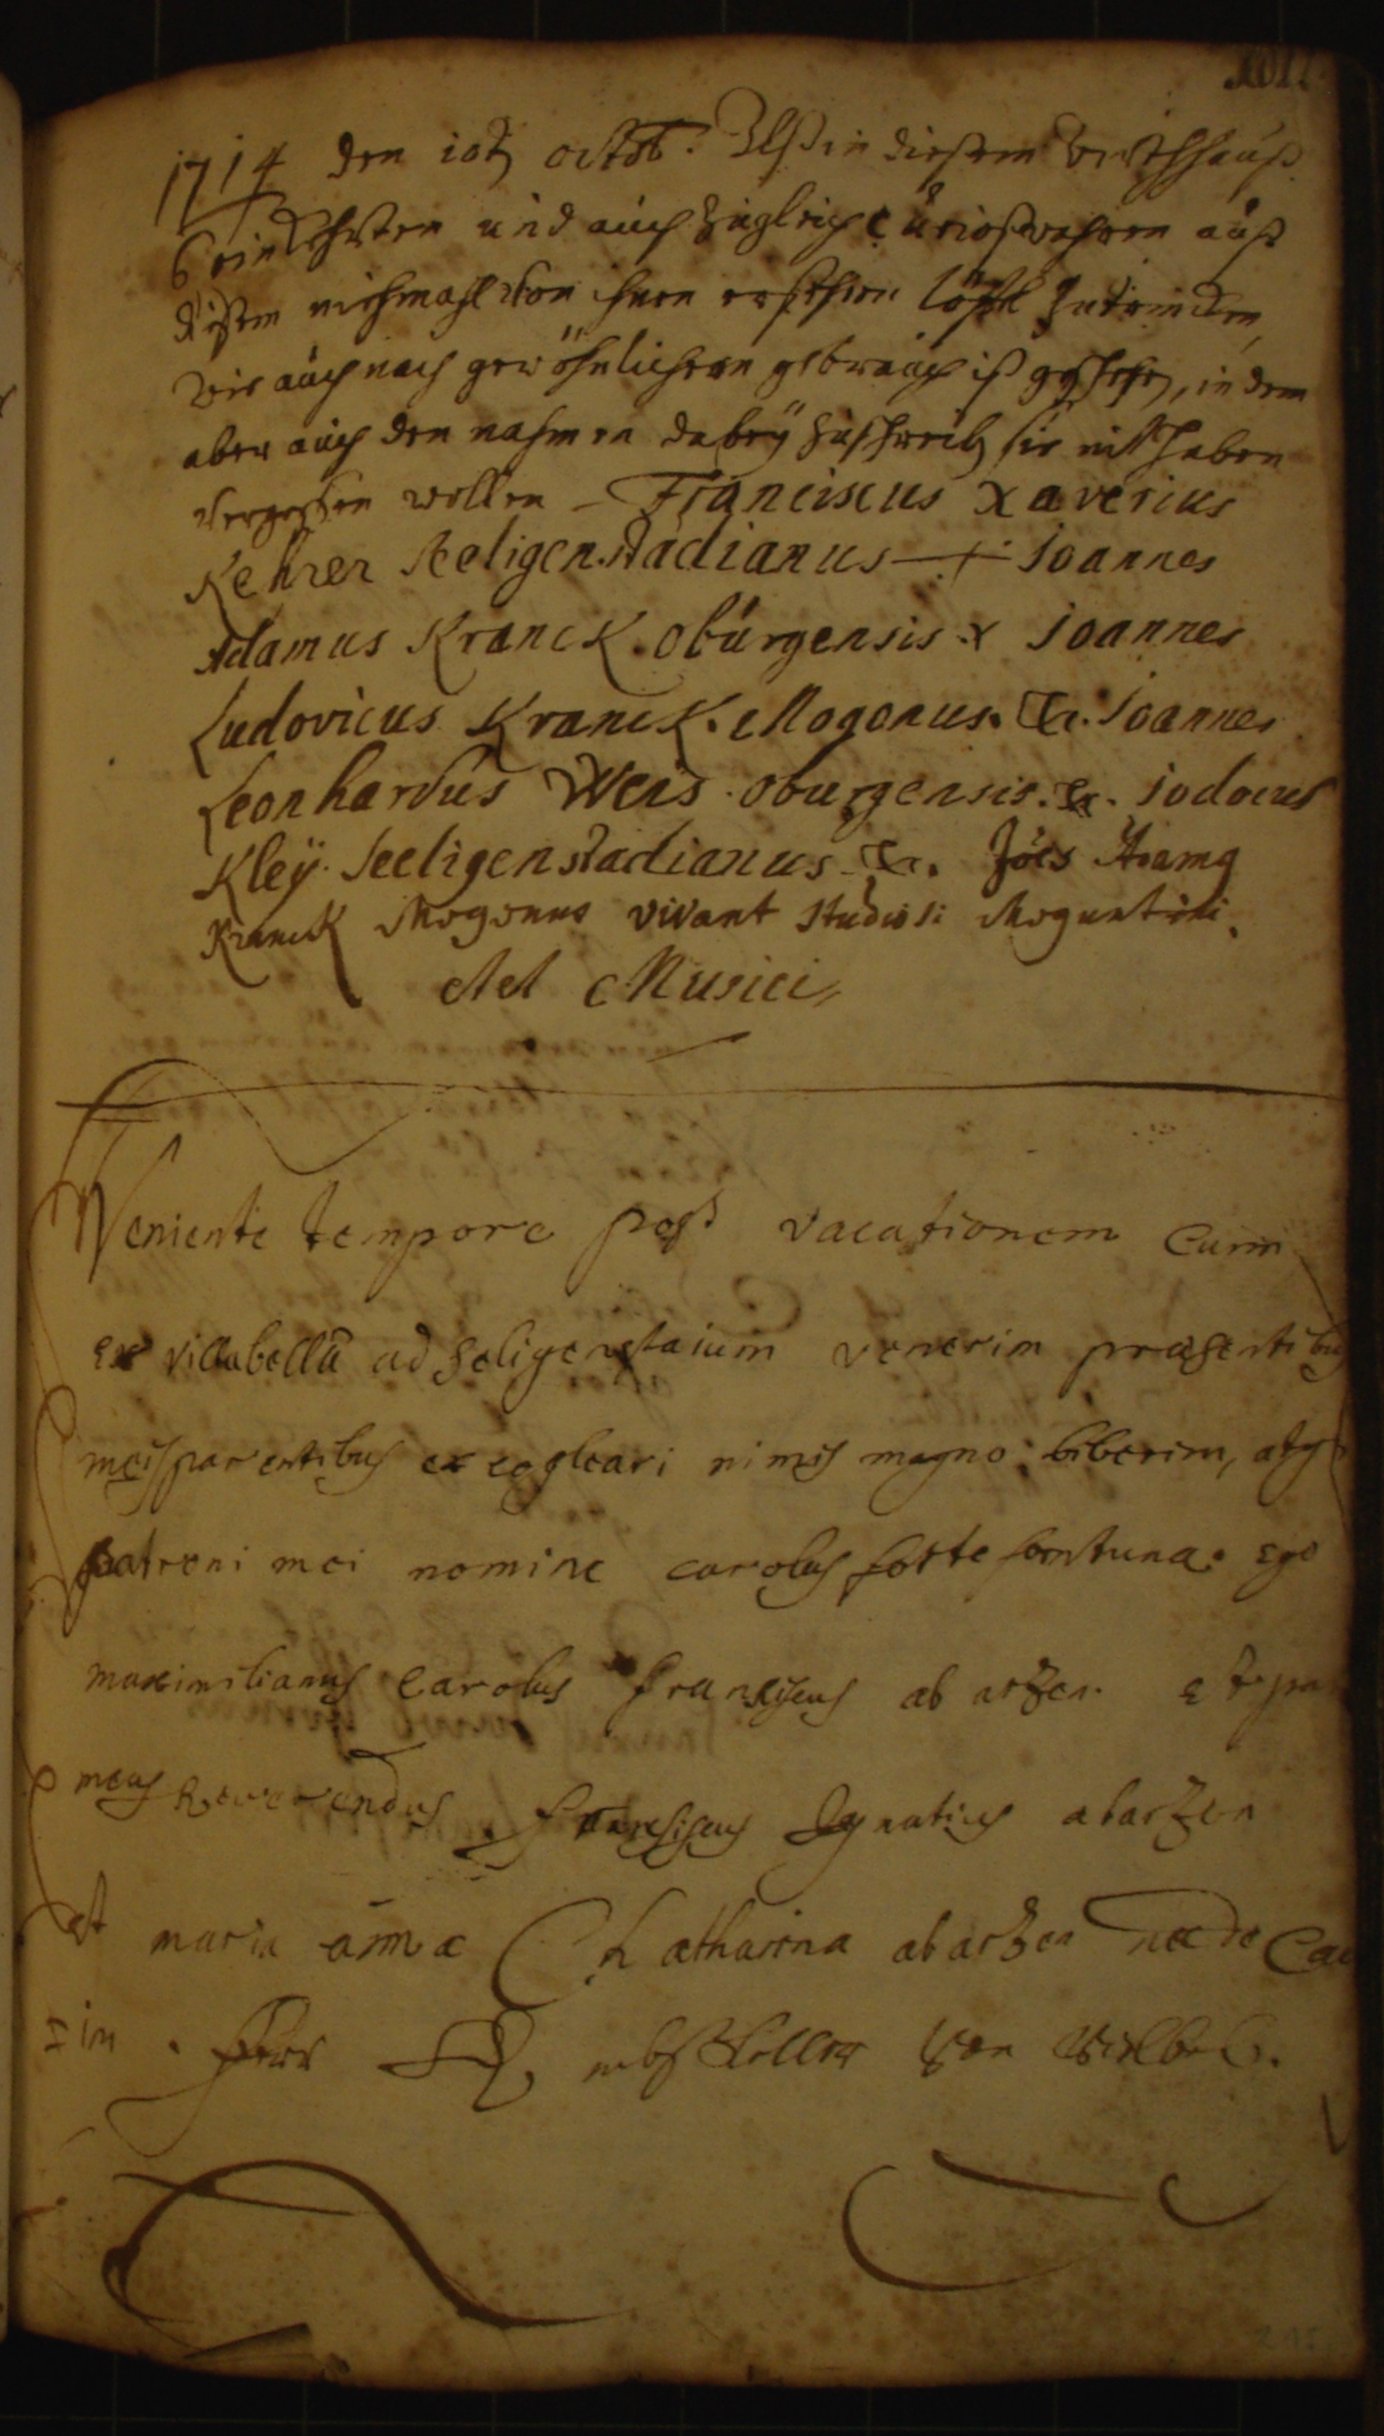 1714 den 10ten octob. Alß in dießem Wirthhauß
6 einkehrten und auch zugleich curios wahren auß
dißem nichmahl von ihnen ersehnen löffel zutrincken,
wie auch nach gewöhnlichem gebrauch ist geschehen, in dem
aber auch den nahmen dabeÿ zuschreib sie nit haben
vergessen wollen – Franciscus Xaverius
Kehrer Seeligenstadianus Joannes
Adamus Kranck. Obürgensis. Joannes
Ludovicus Kranck. Mogonus. Et. Joannes
Leonhardus Weis. oburgensis. Et. jodocus
Kleÿ. Seeligenstadianus Et. Jöes Adamg
Kranck Mogonus vivant studiosi Moguntini
Musici
Veniente tempore post vacationem cum
ex villabellâ ad seligenstaium venerim praesentibus
meis parentibus ex cogleari nimis magno biberim, atq
patroni mei nomine carolus forte fortuna. ego
maximilianus Carolus Fransiscus ab arzen et pa
meus Reverendus Fransiscus Ignatius ab arzen
et maria anna Chatharina ab arzen
von Vilbel.